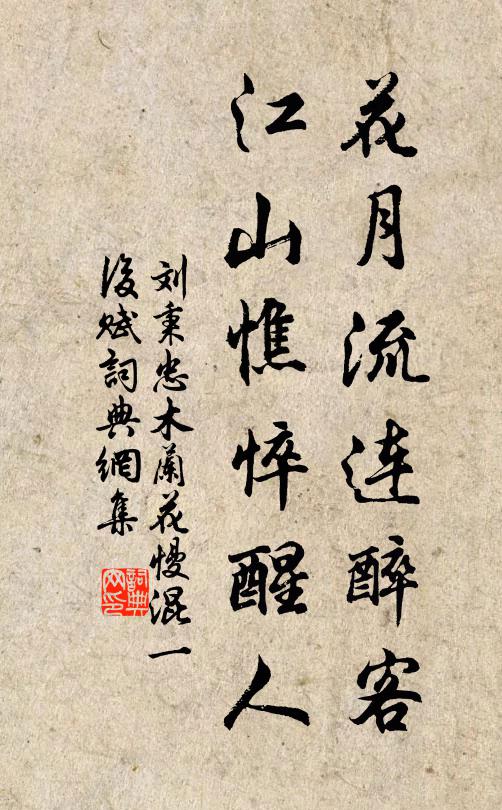 花月流连醉客
江山憔悴醒人
刘秉忠木蘭花慢混一
後赋詞典網集
詞典網印